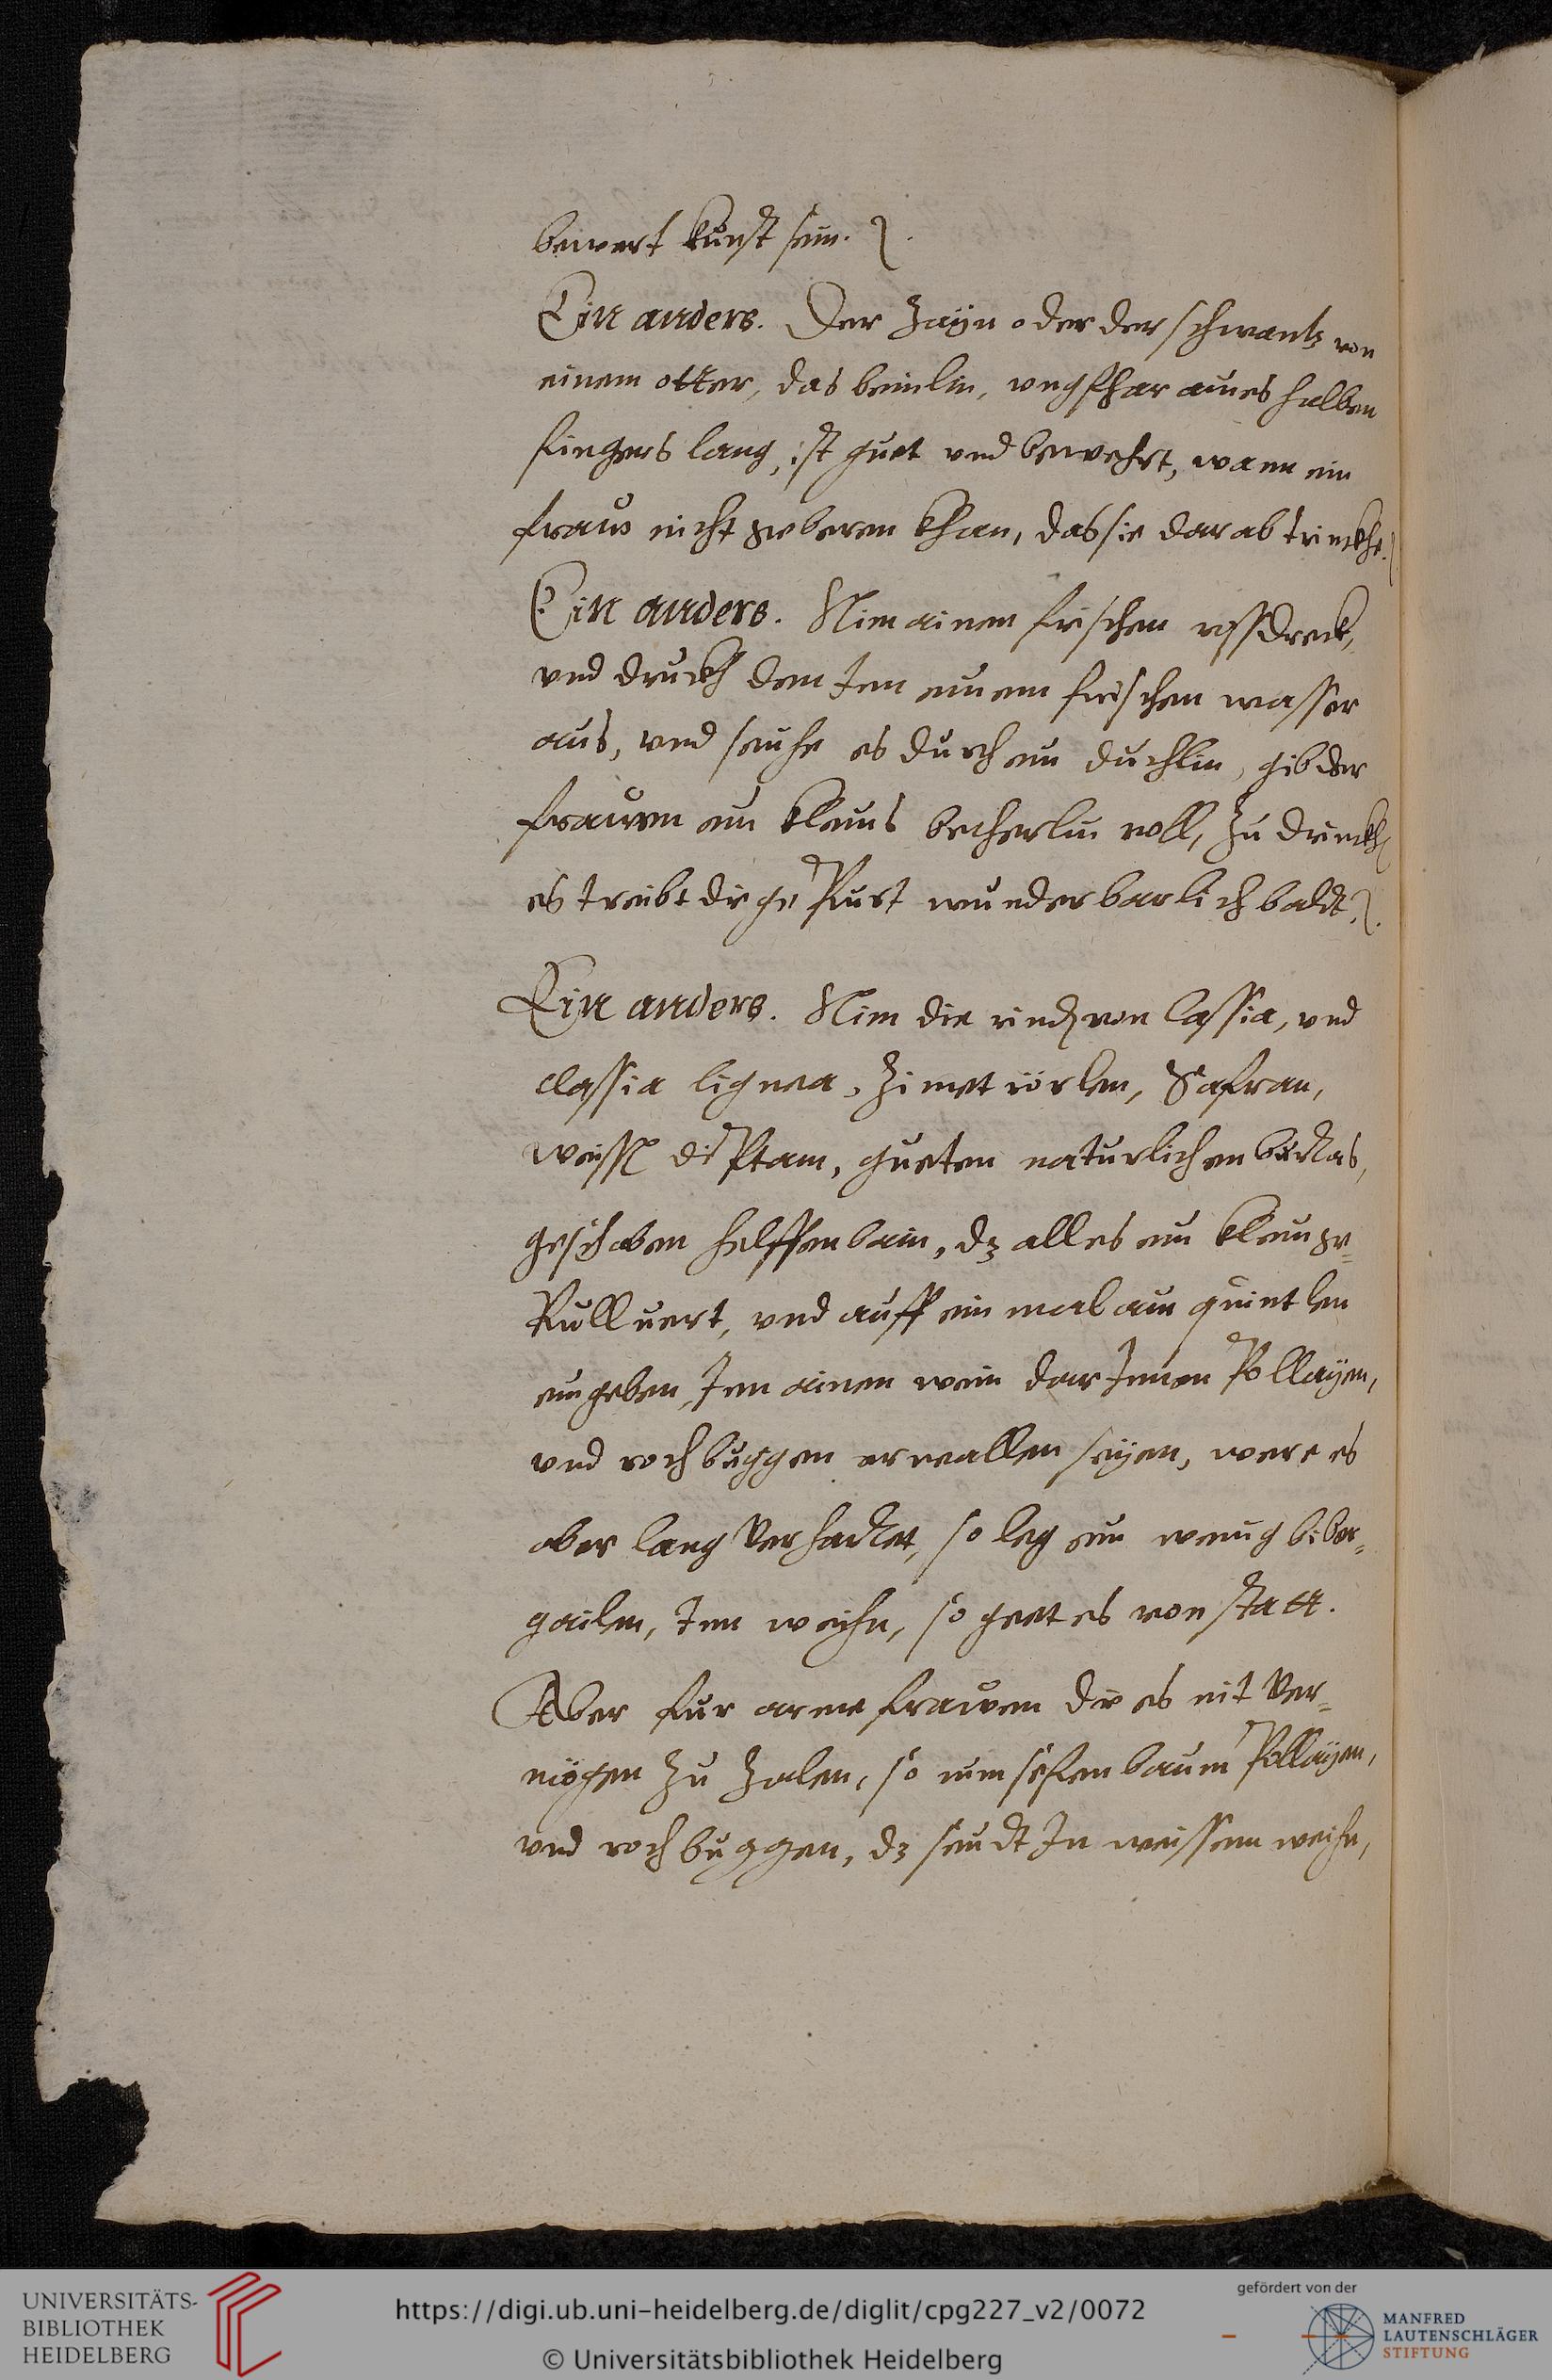 bewert kunst sein.
Ein anders. Der Zayn oder der schwantz von
einem otter, das beinlin, ungefhar aines halben
fingers lang, ist guet und bewehrt, wann ein
fraw nicht geberen khan, das sie darab trinckhe.
Ein anders. Nim ainen frischen rossdreck,
vnd druckh den Inn einem frischen wasser
aus, vnd seuhe es durch ein duchlin, gib der
frauwen ein kleins becherlin voll, zu drinckh
es treibt die gePurt wunderbarlich baldt.
Ein anders. Nim die rind von Cassia, vnd
Cassia lignea, Zimet rörlen, Safran,
weiss diPtam, gueten naturlichen
geschaben helffenbain, dz alles ein klein ge-
Pulluert, vnd auff ein mal ain quintlen
eingeben, Inn ainen wein dar Innen Pollayen,
vnd rochbuggen erwallen seyen, were es
aber lang Verhadtet, so leg ein wenig biber-
gailen, Inn weihn, so geet es von statt.
Aber fur arme frauwen die es nit Ver-
mögen zu Zalen, so nim sefenbaum Pollayen,
vnd rochbuggen, dz seudt In weissem weihn,
UNIVERSITÄTS-
BIBLIOTHEK
HEIDELBERG
https://digi.ub.uni-heidelberg.de/diglit/cpg227_v2/0072
© Universitätsbibliothek Heidelberg
gefördert von der
MANFRED
LAUTENSCHLÄGER
STIFTUNG